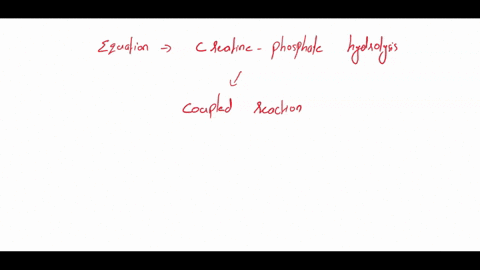 Equation → Creatine - phosphate hydrolysis
Coupled reaction